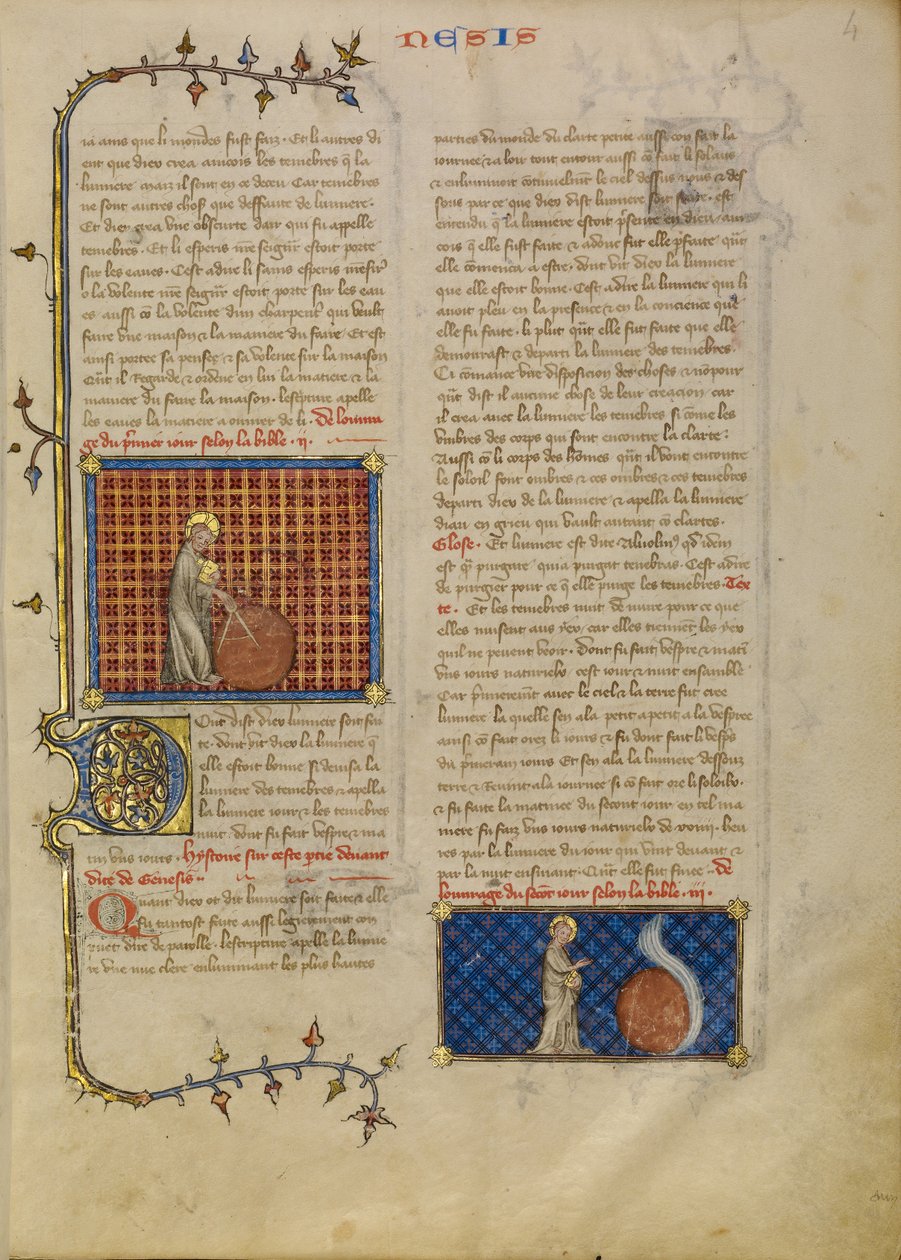 NESIS
4
ia ains que li mondes fust faiz. Et li autres di
ent que diex crea aincois les tenebres q̃ la
lumiere maiz il sont en ce deceu Car tenebres
ne sont autres chos̃ que deffaute de lumiere.
Et diex crea vne obscurte dair qui fu appelle
tenebres. Et li esperis nr̃e seigñr estoit porte
sur les eaues. Cest a dire li sains esperis
o la volente nr̃e seigñr estoit porte sur les eau
es aussi cõ la volente dun charpent' qui veult
faire vne maison & la maniere du faire. Et est
ainsi portee sa pensee & sa volente sur la maison
Qñt il Regarde & ordene en lui la matiere & la
maniere du faire la maison. lescpture apelle
les eaues la matiere a ouurer de li. De louura
ge du p̃mier iour selon la bible. ij.
Dont dist diex lumiere soit fai
te. dont vit diex la lumiere q̃
elle estoit bonne si deuisa la
lumiere des tenebres & apella
la lumiere iour & les tenebres
nuit. dont fu fait vespre & ma
tin vns iours. hystoire sur ceste ptie deuant
dite de Genesis.
Quant diex ot dit lumiere soit faite & elle
fu tantost faite aussi legierement con
dire de parolle. lescripture apelle la lumie
re vne nue clere enluminant les plus hautes
parties du monde du clarte petite aussi con fait la
iournee & a loir tout entour aussi cõ fait li solaus
& enluminoit le ciel dessus nous & des
sous par ce que diex dist lumiere soit faite. est
entendu q̃ la lumiere estoit p̃sente en dieu ain
cois q̃ elle fust faite & adonc fut elle p̃faite qñt
elle cõmenca a estre. dont vit diex la lumiere
que elle estoit bonne. Cest a dire la lumiere qui li
auoit pleu en la presence & en la concience que
elle fu faite. li plut qñt elle fut faite que elle
demourast & departi la lumiere des tenebres.
Ci cõmance vne disposicion des choses & non pour
qñt dist il aucune chose de leur creacion car
il crea auec la lumiere les tenebres si cõme les
vmbres des corps qui sont encontre la clarte.
Aussi cõ li corps des hõmes qñt il vont encontre
le soloil font ombres & ces ombres & ces tenebres
departi diex de la lumiere & apella la lumiere
dian en grieu qui vault autant cõ clartes.
Glose. Et lumiere est dite A luo luis qd' idem
est q̃ purgare quia purgat tenebras. Cest a dire
de purgier pour ce q̃ elle purge les tenebres. Tex
te. Et les tenebres nuit de nuire pour ce que
elles nuisent aus yex, car elles tiennent les yex
quil ne peuent veoir. Dont fu fait vespre & matĩ
vns iours naturielx cest iour & nuit ensamble
Car p̃mierem̃t auec le ciel & la terre fut cree
lumiere la quelle sen ala petit a petit a la vespre
ainsi cõ fait orez li iours & fu dont fait li vesp̃s
du p̃merain iours Et sen ala la lumiere dessouz
terre & Reuint a la iournee si cõ fait ore li soloilx.
& fu faite la matinee du secont iour en tel ma
niere fu faiz vns iours naturielx de xxiiij. heu
res par la lumiere du iour qui vint deuant &
par la nuit ensiuant. Qñt elle fut finee. De
louurage du secõt iour selon la bible. iij.